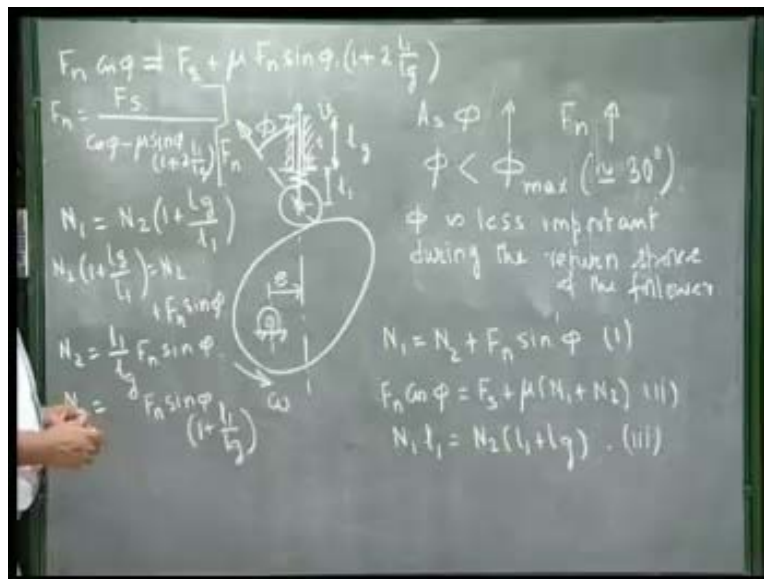 Fn cos φ = Fs + μ Fn sin φ. (1 + 2 l1/lg)
Fn = Fs / (cos φ - μ sin φ (1 + 2 l1/lg))
N1 = N2 (1 + lg/l1)
N2 (1 + lg/l1) = N2
+ Fn sin φ
N2 = l1/lg Fn sin φ.
N = Fn sin φ
(1 + l1/lg)
Fn
φ
v
lg
l1
e
ω
As φ ↑ Fn ↑
φ < φmax (≃ 30°)
φ is less important
during the return stroke
of the follower
N1 = N2 + Fn sin φ (i)
Fn cos φ = Fs + μ(N1 + N2) (ii)
N1 l1 = N2 (l1 + lg) . (iii)